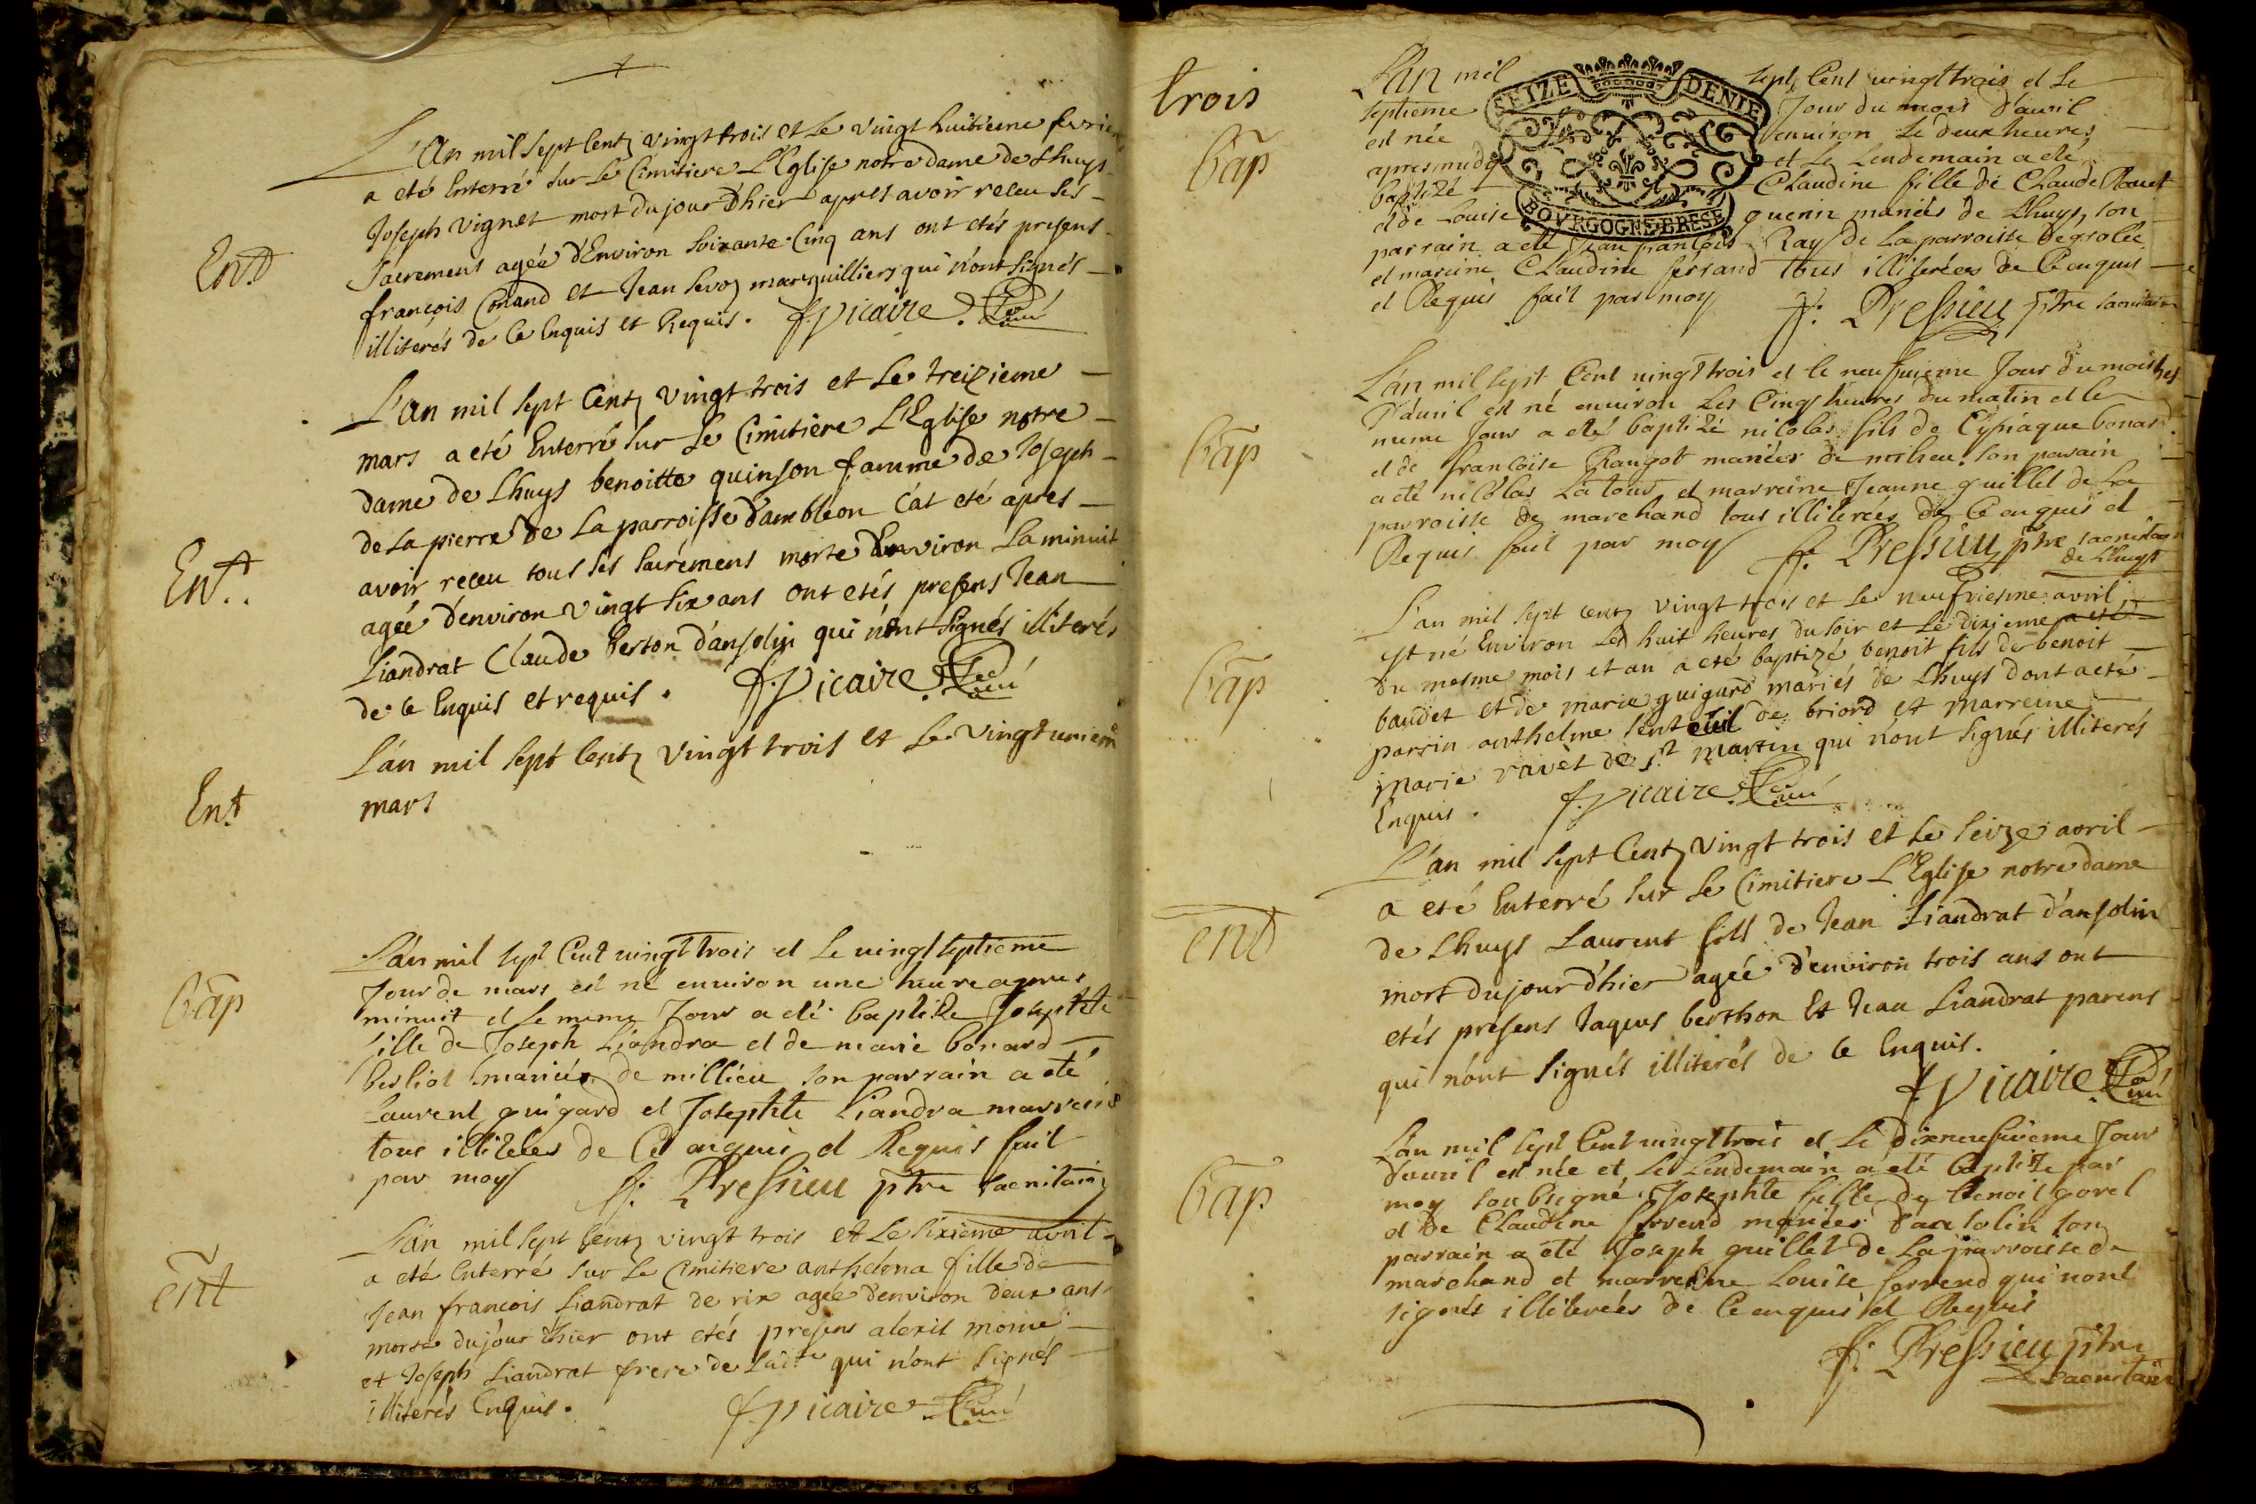 L'An mil sept Centz vingt trois et Le vingt huitieme fevrier
Ent.
a eté Enterré sur Le Cimitiere L'Eglise notre dame de Lhuys
Joseph vignet mort du jour d'hier apres avoir receu ses
sacremens ageé d'Environ soixante Cinq ans ont etés presens
françois Conand et Jean marguilliers qui n'ont signés
illiterés de Ce Enquis et Requis. f. vicaire. Curé
L'an mil sept Centz vingt trois et Le treizieme
Ent.
mars a eté Enterré sur Le Cimitiere L'Eglise notre
dame de Lhuys benoitte quinson famme de Joseph
de La pierre de La parroisse d'ambleon eté apres
avoir receu tous ses sacremens morte Environ La minuit
ageé d'environ vingt six ans ont etés presens Jean
Liandrat Claude Berton d'ansolin qui n'ont signés illiterés
de Ce Enquis et requis. f. vicaire. Curé
Ent
L'an mil sept Centz vingt trois et Le vingt unieme
mars
Bap
L'an mil sept Cent vingt trois et Le vingt septieme
Jour de mars est né environ une heure apres
minuit et Le meme Jour a eté baptizé Josephte
fille de Joseph Liandra et de marie bonard
mariés de millieu son parrain a eté
Laurent guigard et Josephte Liandra marreine
tous de Ce enquis et Requis fait
par moy f. Pressieu ptre sacristain
ent
L'an mil sept Centz vingt trois et Le sixieme avril
a eté Enterré sur Le Cimitiere anthelma fille de
Jean françois Liandrat de rix ageé d'environ deux ans
morte du jour d'hier ont etés presens alexis moine
et Joseph Liandrat frere de qui n'ont signés
illiterés Enquis. f. vicaire Curé
trois
L'an mil sept Cent vingt trois et Le
Bap
septieme Jour du mois d'avril
est née environ Le deux heures
apres midy et Le Lendemain a eté
baptizé Claudine fille de Claude
et de Louise guenin mariés de Lhuys, son
parrain a eté Jean françois Ray de La parroisse de grolée
et marreine Claudine ferrand tous illiterées de Ce enquis
et Requis fait par moy f. Pressieu ptre sacristain
SEIZE DENIE
BOVRGOGNE BRESE
L'an mil sept Cent vingt trois et le neufvieme Jour du mois
Bap
D'avril est né environ Les Cinq heures du matin et le
meme Jour a eté baptizé nicolas fils de Cyriaque bonard
et de françoise Raugot mariées de son parain
a eté nicolas La tour et marreine Jeanne guillet de La
parroisse de marchand tous illiterées de Ce enquis et
Requis fait par moy f. Pressieu ptre sacristain
de Lhuys
L'an mil sept centz vingt trois et Le neufviesme avril
Bap
est né Environ Les huit heures du soir et Le dixieme
du mesme mois et an a eté baptizé benoit fils de benoit
baudet et de marie guigard mariés de Lhuys dont a eté
parrin anthelme de briord et marreine
marie ravet de St martin qui n'ont signés illiterés
Enquis. f. vicaire. Curé
L'an mil sept Centz vingt trois et Le seize avril
ent
a eté Enterré sur Le Cimitiere L'Eglise notre dame
de Lhuys Laurent fils de Jean Liandrat d'ansolin
mort du jour d'hier ageé d'environ trois ans ont
etés presens Jaques berthon et Jean Liandrat parens
qui n'ont signés illiterés de Ce Enquis.
f. vicaire. Curé
L'an mil sept Cent vingt trois et Le dixneufvieme Jour
Bap
d'avril est née et Le Lendemain a eté baptizé par
moy soubsigné Josephte fille de benoit gorel
et de Claudine ferrend mariées d'ansolin son
parrain a eté Joseph guillet de La parroisse de
marchand et marreine Louise ferrend qui n'ont
signés illiterées de Ce enquis et Requis
f. Pressieu ptre
sacristain